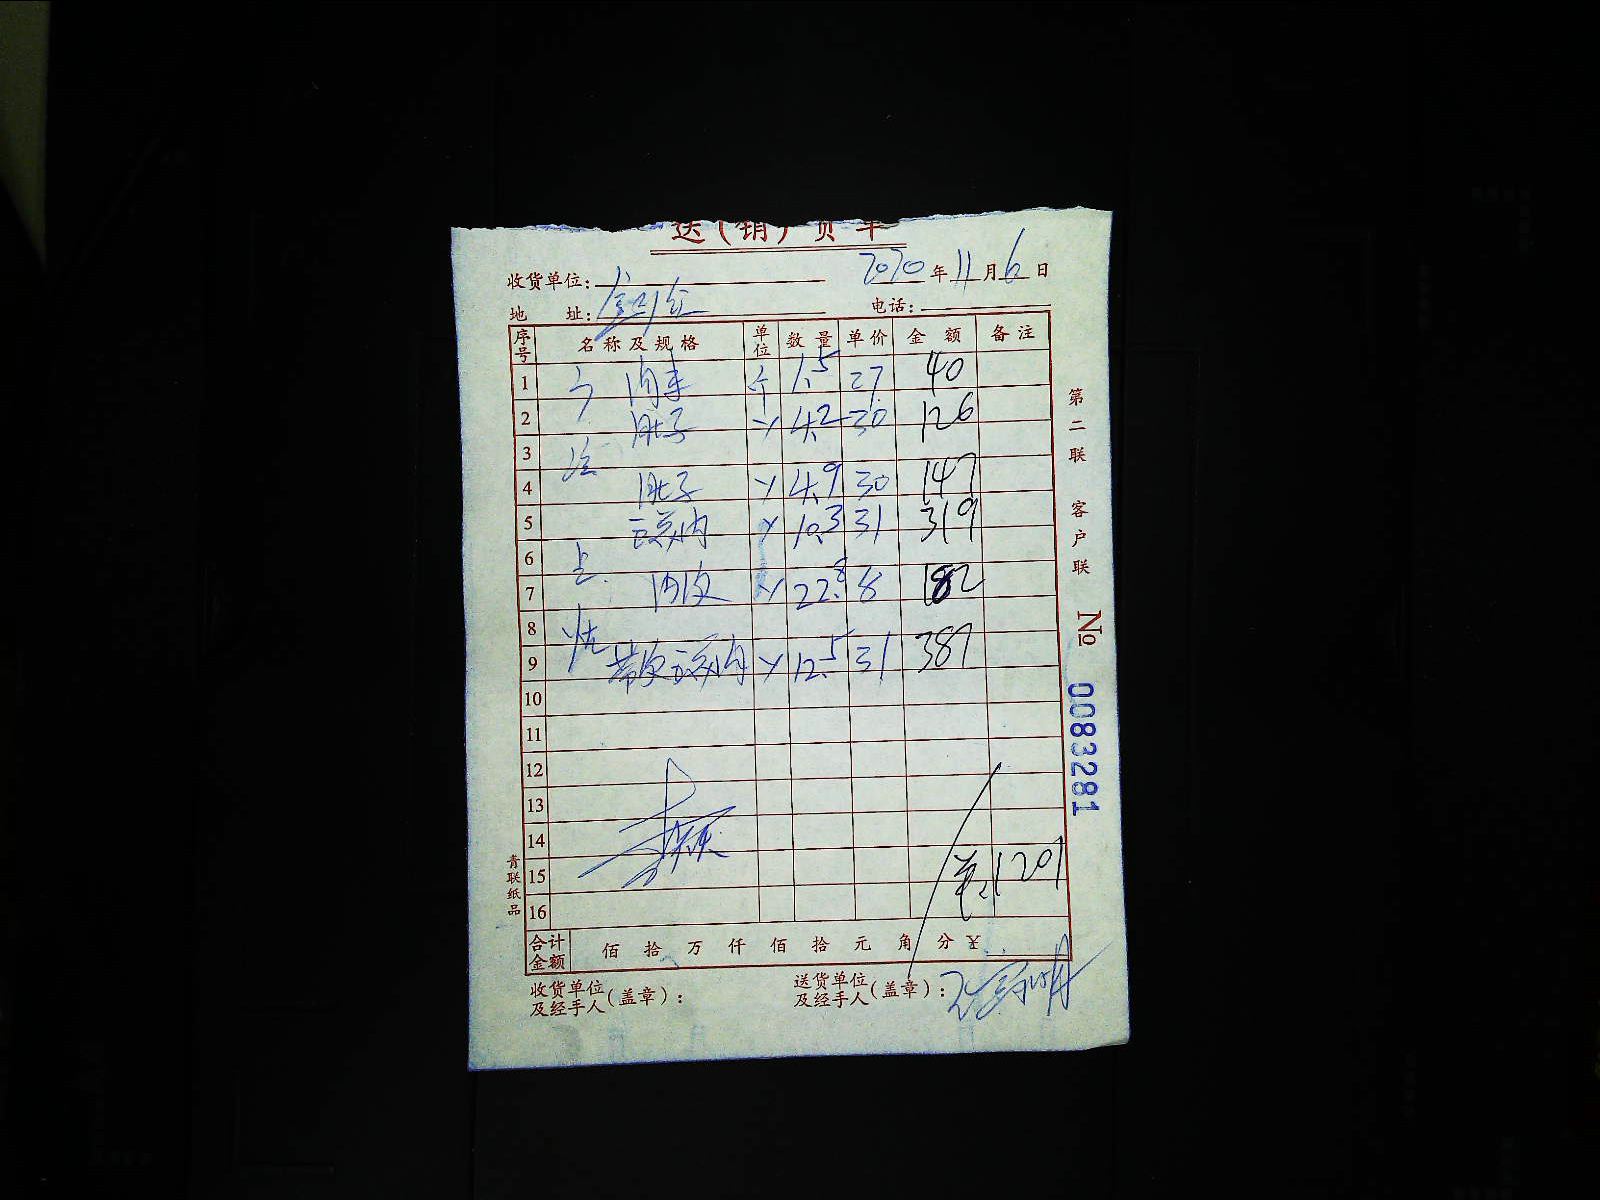 送(销)货单
收货单位: 2020年11月6日
地 址: 电话:
序号 名称及规格 单位 数量 单价 金额 备注
1 肉末 个 1.5 27 40
2 肚子 4.2 30 126
3
4 肚子 4.9 30 147
5 豆芽肉 10.3 31 319
6
7 肉皮 22.8 8 182
8
9 带皮豆芽肉 12.5 31 387
10
11
12
13
14
15 1201
16
合计金额 佰 拾 万 仟 佰 拾 元 角 分 ¥
收货单位及经手人(盖章):
送货单位及经手人(盖章):
第二联 客户联
№ 0083281
青联纸品